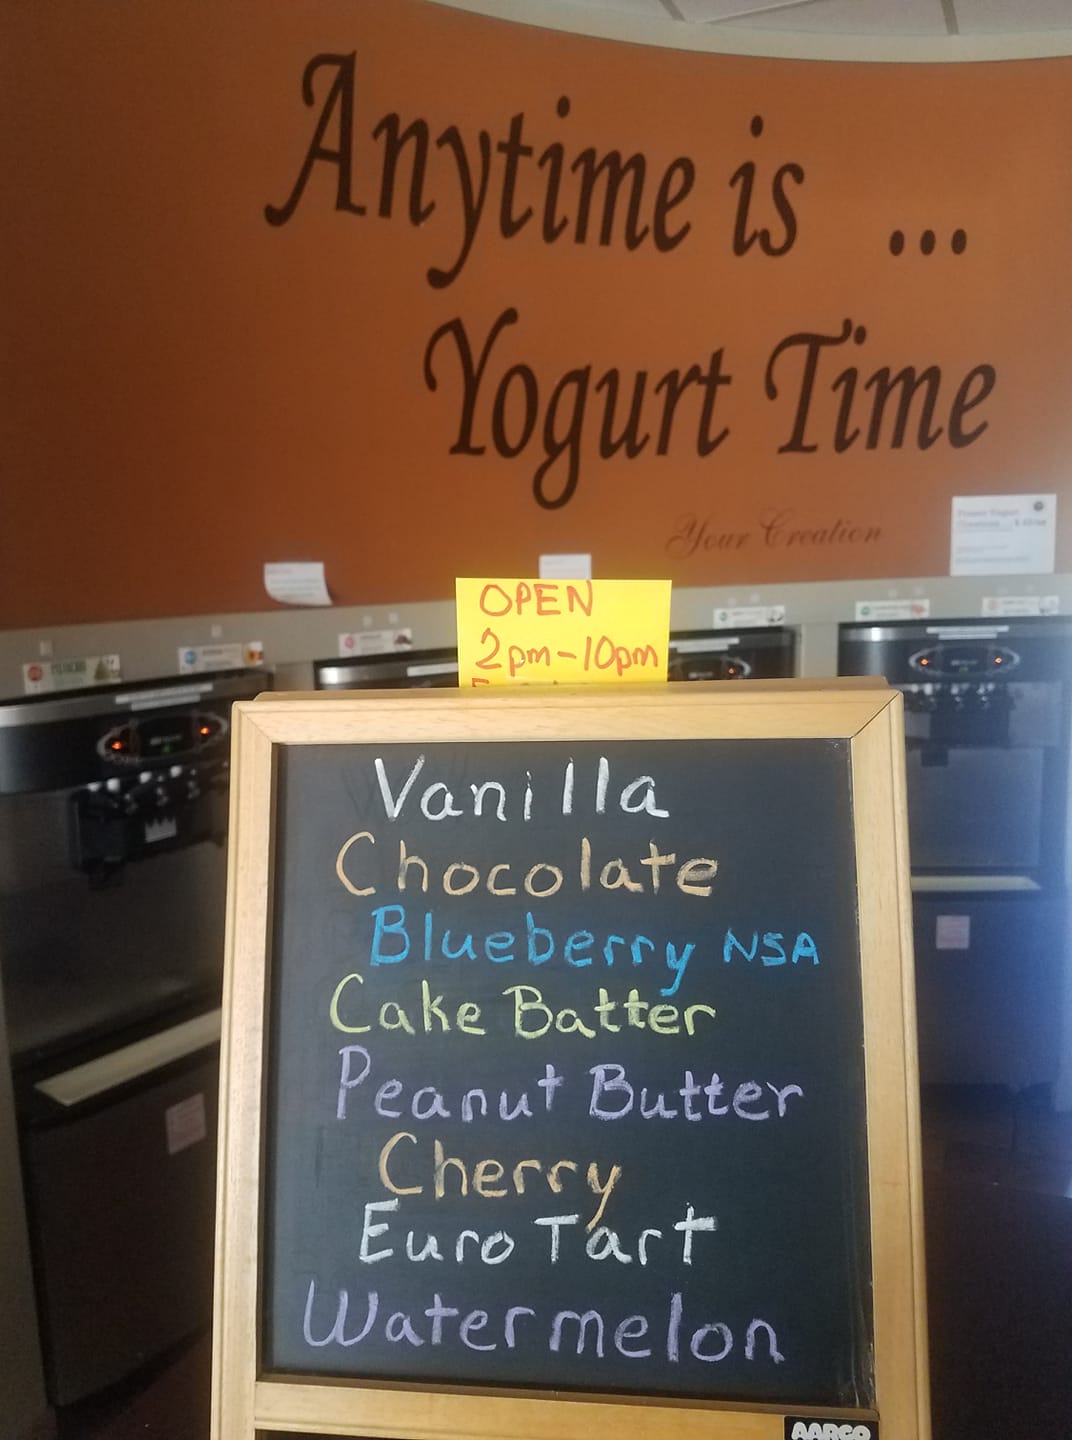 Anytime is ...
Yogurt Time
Your Creation
OPEN
2pm-10pm
Vanilla
Chocolate
Blueberry NSA
Cake Batter
Peanut Butter
Cherry
Euro Tart
Watermelon
AARCO